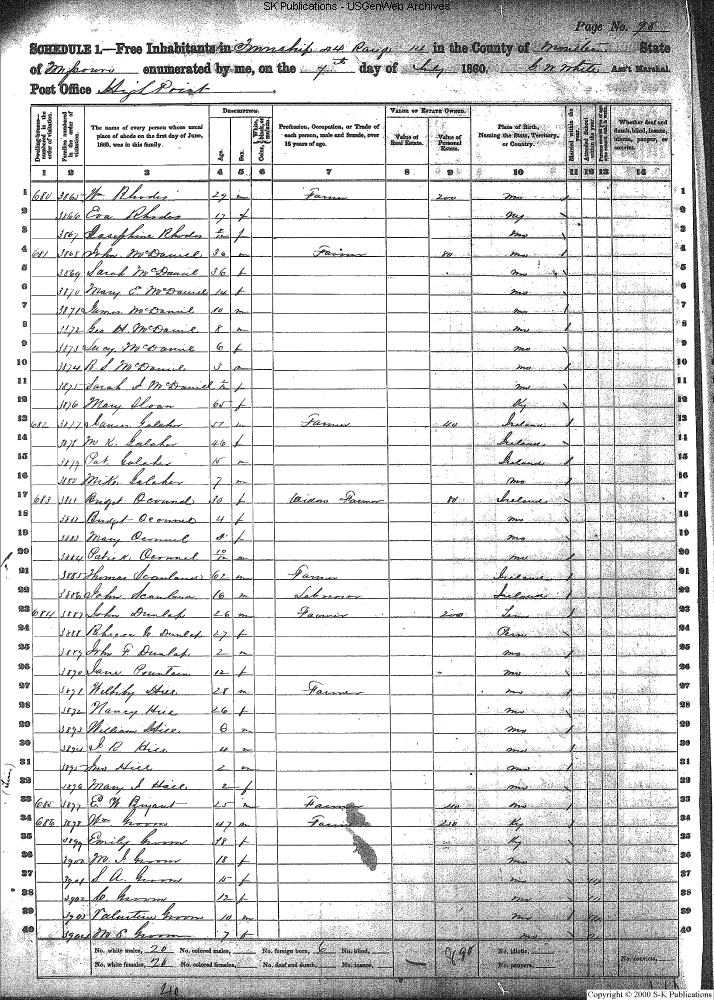 SK Publications - USGenWeb Archives
Page No. 98
SCHEDULE 1.—Free Inhabitants in Township 44 Range 14 in the County of Moniteau State
of Missouri enumerated by me, on the 7th day of July 1860. G. W. White Ass't Marshal.
Post Office High Point
Dwelling-houses—numbered in the order of visitation.
Families numbered in the order of visitation.
The name of every person whose usual place of abode on the first day of June, 1860, was in this family.
DESCRIPTION.
Age.
Sex.
Color, White, black, or mulatto.
Profession, Occupation, or Trade of each person, male and female, over 15 years of age.
VALUE OF ESTATE OWNED.
Value of Real Estate.
Value of Personal Estate.
Place of Birth, Naming the State, Territory, or Country.
Married within the year.
Attended School within the year.
Whether deaf and dumb, blind, insane, idiotic, pauper, or convict.
1 2 3 4 5 6 7 8 9 10 11 12 13 14
1 680 3865 Wm Rhodes 29 m Farmer 200 Mo / 1
2 3866 Eva Rhodes 17 f Ny 2
3 3867 Josephine Rhodes f Mo 3
4 681 3868 John McDaniel 36 m Farmer 80 Mo / 4
5 3869 Sarah McDaniel 36 f Mo 5
6 3870 Mary E McDaniel 14 f Mo 6
7 3871 James McDaniel 10 m Mo 7
8 3872 Geo H McDaniel 8 m Mo 8
9 3873 Lucy McDaniel 6 f Mo 9
10 3874 R S McDaniel 3 m Mo 10
11 3875 Sarah J McDaniel f Mo 11
12 3876 Mary Sloan 65 f Ky 12
13 682 3877 James Galaher 51 m Farmer 40 Ireland 13
14 3878 M K Galaher 46 f Ireland 14
15 3879 Pat Galaher 15 m Ireland 15
16 3880 Mike Galaher 7 m Mo 16
17 683 3881 Bridget Oconnel 30 f Widow Farmer 80 Ireland 17
18 3882 Bridget Oconnel 4 f Mo 18
19 3883 Mary Oconnel f Mo 19
20 3884 Patrick Oconnel 10/12 m Mo 20
21 3885 Thomas Scanland 62 m Farmer Ireland 21
22 3886 John Scanlan 16 m Laborer Ireland 22
23 684 3887 John Dunlap 26 m Farmer 200 Tenn 23
24 3888 Rebecca C Dunlap 27 f 24
25 3889 John F Dunlap 2 m Mo 25
26 3890 Jane Fountain 12 f Mo 26
27 3891 Hill 28 m Farmer Mo 27
28 3892 Nancy Hill 26 f Mo 28
29 3893 William Hill 6 m Mo 29
30 3894 J R Hill 4 m Mo 30
31 3895 Jno Hill 2 m Mo 31
32 3896 Mary J Hill 2 f Mo 32
33 685 3897 E W Bryant 25 m Farmer Mo 33
34 686 3898 Wm Groom 47 m Farmer 250 Ky 34
35 3899 Emily Groom 48 f Ky 35
36 3900 M J Groom 18 f Mo 36
37 3901 S A Groom 15 f Mo 37
38 3902 C Groom 12 f Mo 38
39 3903 Valentine Groom 10 m Mo 39
40 3904 M E Groom 7 f Mo 40
No. white males, 20 No. colored males, No. foreign born, 6 No. blind, No. idiotic,
No. white females, 20 No. colored females, No. deaf and dumb, No. insane, No. paupers, No. convicts,
40
Copyright © 2000 S-K Publications